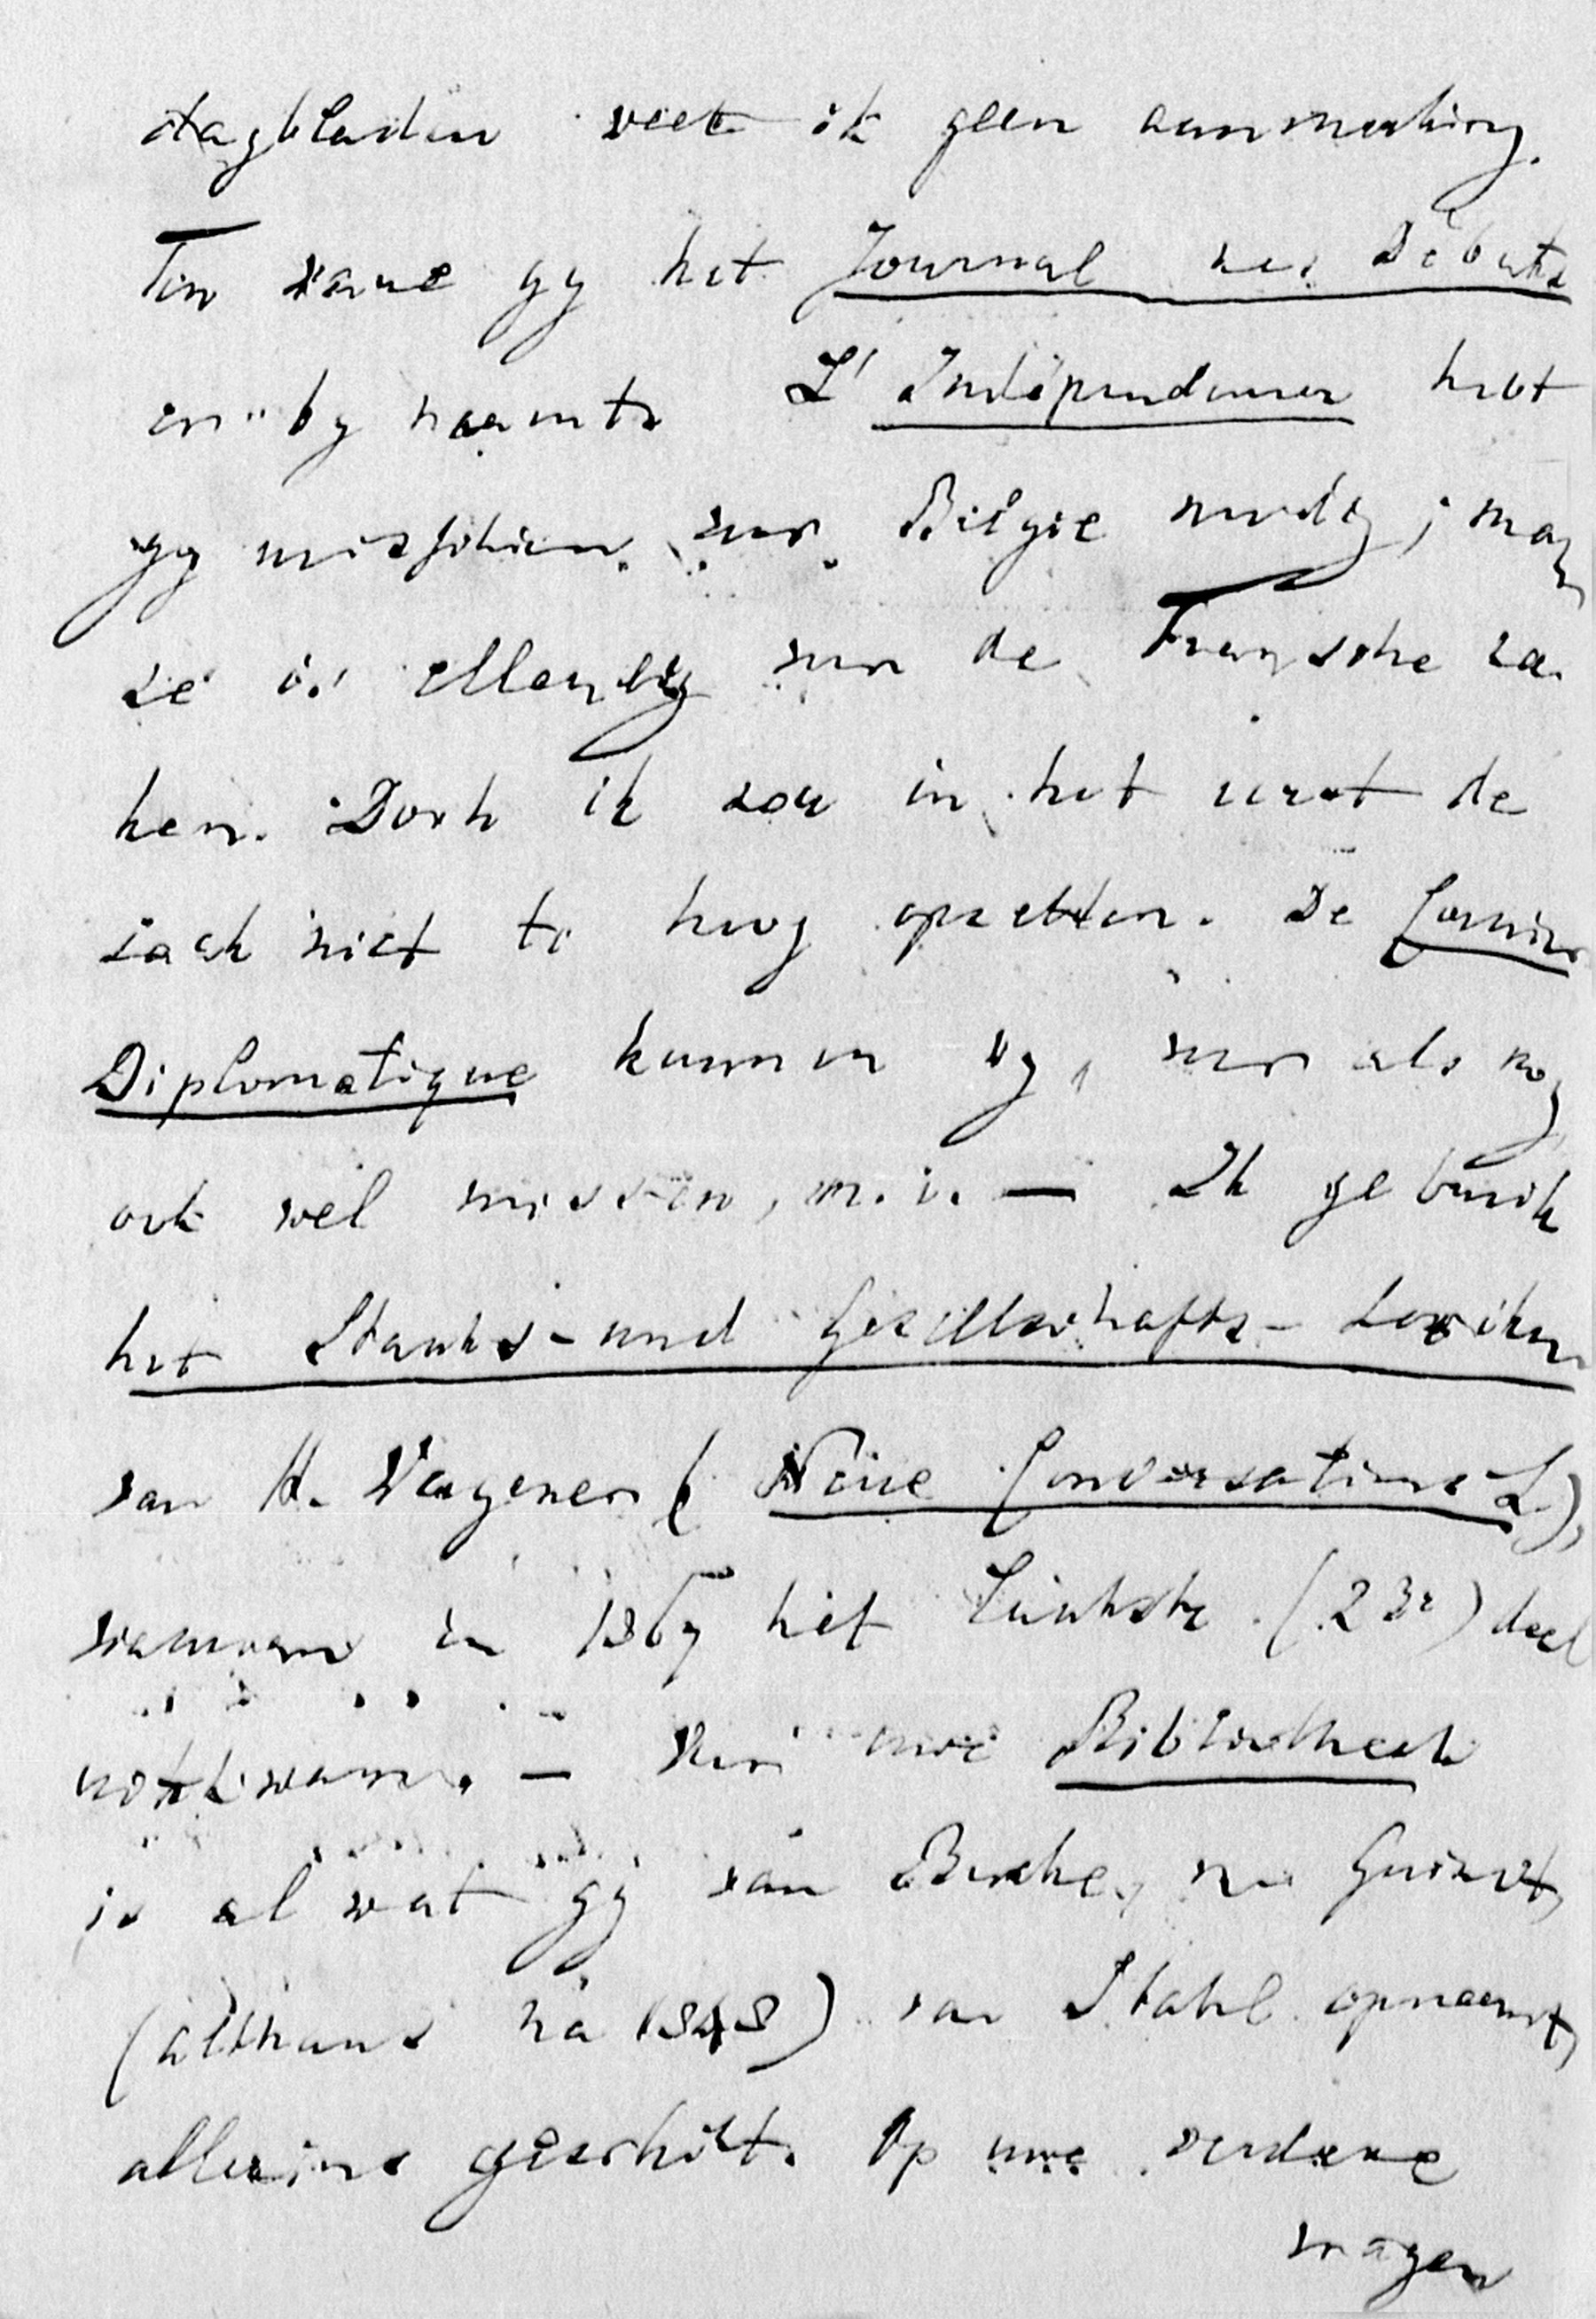 dagbladen weet ik geen aanmerking.
Ten ware gy het Journal des Débats
er by naamt. L'Indépendance hebt
gy misschien voor België noodig; maar
ze is ellendig voor de Fransche za-
ken. Doch ik zou in het eerst de
zaak niet te hoog opzetten. De Courrier
Diplomatique kunnen wy, voor als nog
ook wel missen, m.i. — Ik gebruik
het Staats- und Gesellschafts-Lexikon
van H. Wagener (Neue Conversations L.),
waarvan in 1867 het laatste (23e) deel
uitkwam. — Voor uwe Bibliotheek
is al wat gy van Burke, van Guizot,
(althans na 1848) van Stahl opneemt,
allezins geschikt. Op uwe verdere
vragen